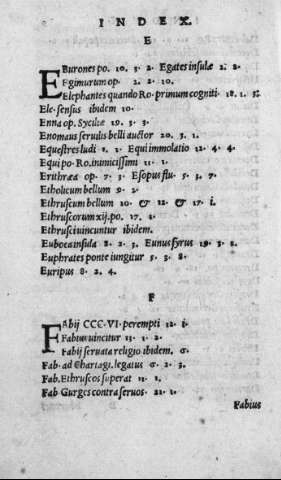 INDEX.
E
EBurones po. 10. 5. 2. Egates insulæ 2. 2.
Egimurum op. 2. 2. 10.
Elephantes quando Ro. primum cogniti. 18. 1. 5.
Ele. sensus ibidem 10.
Enna op. Syciliæ 19. 3. 2.
Enomaus seruilis belli auctor 20. 3. 1.
Equestres ludi 1. 1. Equi immolatio 12. 4. 4.
Equi po. Ro. inimicissimi 11. 1.
Erithræa op. 7. 3. Esopus flu. 5. 3. 7.
Etholicum bellum 9. 2.
Ethruscum bellum 10. & 12. & 17. i.
Ethruscorum xij. po. 17. 1.
Ethrusci uincuntur ibidem.
Euboea insula 8. 2. 3. Eunus syrus 19. 3. 2.
Euphrates ponte iungitur 5. 3. 8.
Euripus 8. 2. 4.
F
FAbij CCC. VI. perempti 12. i.
Fabius uincitur 13. 1. 2.
Fabij seruata religio ibidem. 6.
Fab. ad Chartagi. legatus 6. 2. 3.
Fab. Ethruscos superat 11. 1.
Fab Gurges contra seruos. 21. 1.
Fabius